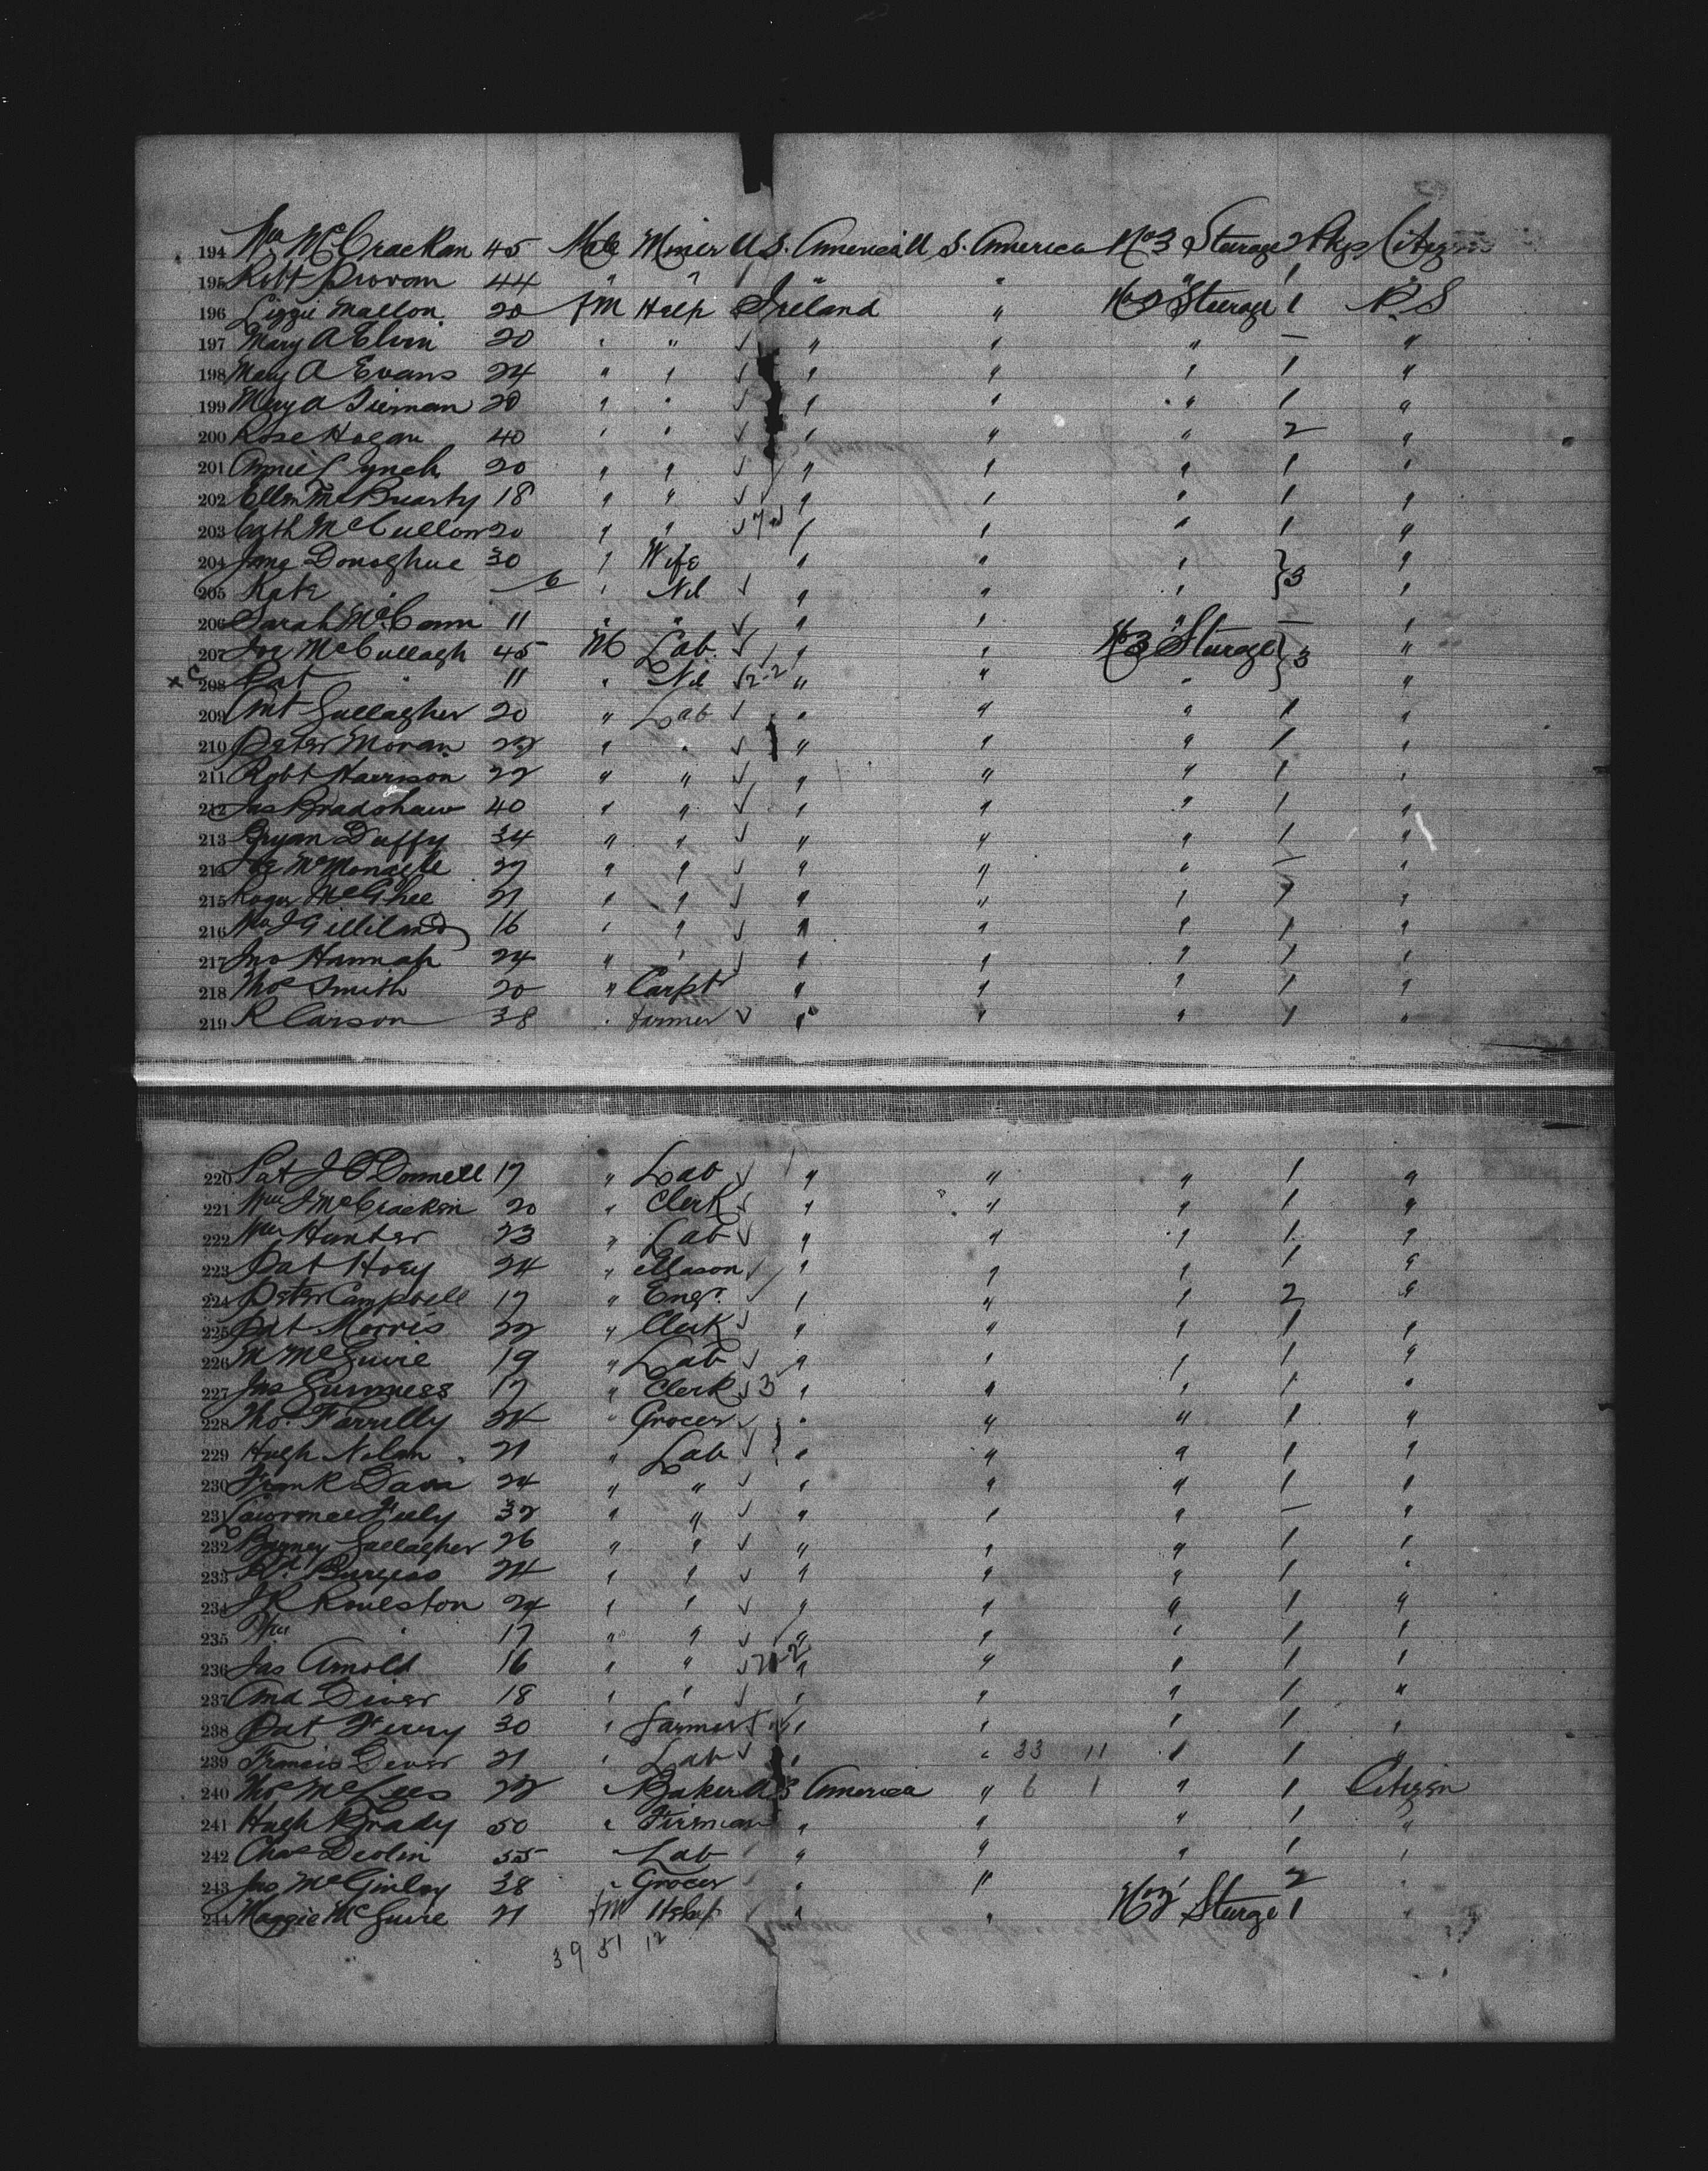 194 Wm McCrackan 45 Male Miner U.S. America U.S. America No 3 Sturage 2 Pkgs Citizens
195 Robt Provan 44 " " " " " 1
196 Lizzie Mallon 20 fM Help Ireland " No 2 Sturage 1 P.S
197 Mary A Elvin 20 " " ✓ " " " — "
198 Mary A Evans 24 " " ✓ " " " 1 "
199 Mary A Tiernan 20 " " ✓ " " " 1 "
200 Rose Hogan 40 " " ✓ " " " 2 "
201 Annie Lynch 20 " " ✓ " " " 1 "
202 Ellen McBrearty 18 " " ✓ " " " 1 "
203 Cath McCullom 20 " " ✓ " " " 1 "
204 Jane Donoghue 30 " Wife " " " } "
205 Kate " 6 " Nil ✓ " " " } 3 "
206 Sarah McCann 11 " " ✓ " " " — "
207 Joe McCullagh 45 M Lab. ✓ " " No 3 Sturage } 3 "
208 Pat " 11 " Nil ✓ 2-2 " " " } "
209 Ant Gallagher 20 " Lab ✓ " " " 1 "
210 Peter Moran 22 " " ✓ " " " 1 "
211 Robt Harrison 22 " " ✓ " " " 1 "
212 Jas Bradshaw 40 " " ✓ " " " 1 "
213 Bryan Duffy 34 " " ✓ " " " 1 "
214 McMonagle 27 " " ✓ " " " — "
215 Roger McGhee 21 " " ✓ " " " 1 "
216 Wm J Gilliland 16 " " ✓ " " " 1 "
217 Jno Hannah 24 " " ✓ " " " 1 "
218 Thos Smith 20 " Carptr " " " 1 "
219 R Carson 38 " Farmer ✓ " " " 1 "
220 Pat J O'Donnell 17 " Lab ✓ " " " 1 "
221 Wm J McCracken 20 " Clerk ✓ " " " 1 "
222 Wm Hunter 23 " Lab ✓ " " " 1 "
223 Pat Hoey 24 " Mason ✓ " " " 1 "
224 Peter Campbell 17 " Engr. ✓ " " " 2 "
225 Pat Morris 22 " Clerk ✓ " " " 1 "
226 M McGuire 19 " Lab ✓ " " " 1 "
227 Jas Guinness 17 " Clerk ✓ 3 " " " 1 "
228 Tho. Farrelly 24 " Grocer ✓ " " " 1 "
229 Hugh Nolan 21 " Lab ✓ " " " 1 "
230 Frank Dava 24 " " ✓ " " " 1 "
231 Lawrence Feely 32 " " ✓ " " " — "
232 Barney Gallagher 26 " " ✓ " " " 1 "
233 Burgess 24 " " ✓ " " " 1 "
234 J R Roulston 24 " " ✓ " " " 1 "
235 Wm " 17 " " ✓ " " " 1 "
236 Jas Arnold 16 " " ✓ " " " 1 "
237 And Diver 18 " " ✓ " " " 1 "
238 Pat Ferry 30 " Farmer ✓ " " " 1 "
239 Francis Dever 21 " Lab ✓ " " 33 11 " 1 "
240 Thos McLees 22 " Baker U S America " 6 1 " 1 Citizen
241 Hugh Brady 50 " Fireman " " " 1 "
242 Chas Devlin 55 " Lab " " " 1 "
243 Jas McGinley 38 " Grocer " " " 2 "
244 Maggie McGuire 21 fM " " No 2 Sturge 1 "
39 51 12